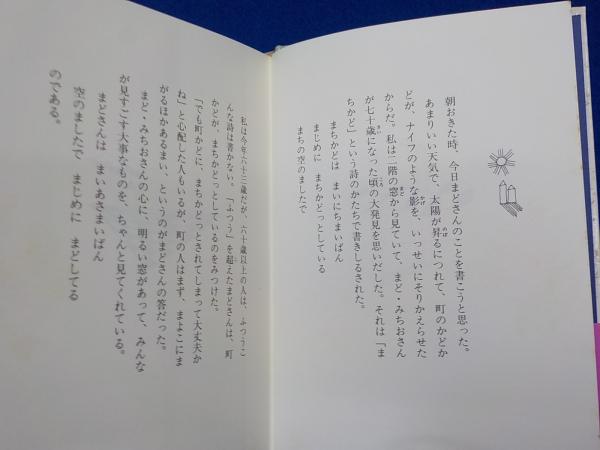 朝おきた時、今日まどさんのことを書こうと思った。
あまりいい天気で、太陽が昇るにつれて、町のかどか
どが、ナイフのような影を、いっせいにそりかえらせた
からだ。私は二階の窓から見ていて、まど・みちおさん
が七十歳になった頃の大発見を思いだした。それは「ま
ちかど」という詩のかたちで書きしるされた。
まちかどは まいにちまいばん
まじめに まちかどっとしている
まちの空のましたで
私は今年六十三歳だが、六十歳以上の人は、ふつうこ
んな詩は書かない。「ふつう」を超えたまどさんは、町
かどが、まちかどっとしているのをみつけた。
「でも町かどに、まちかどっとされてしまって大丈夫か
ね」と心配した人もいるが、町の人はまず、まよこにま
がるほかあるまい、というのがまどさんの答だった。
まど・みちおさんの心に、明るい窓があって、みんな
が見すごす大事なものを、ちゃんと見てくれている。
まどさんは まいあさまいばん
空のましたで まじめに まどしてる
のである。